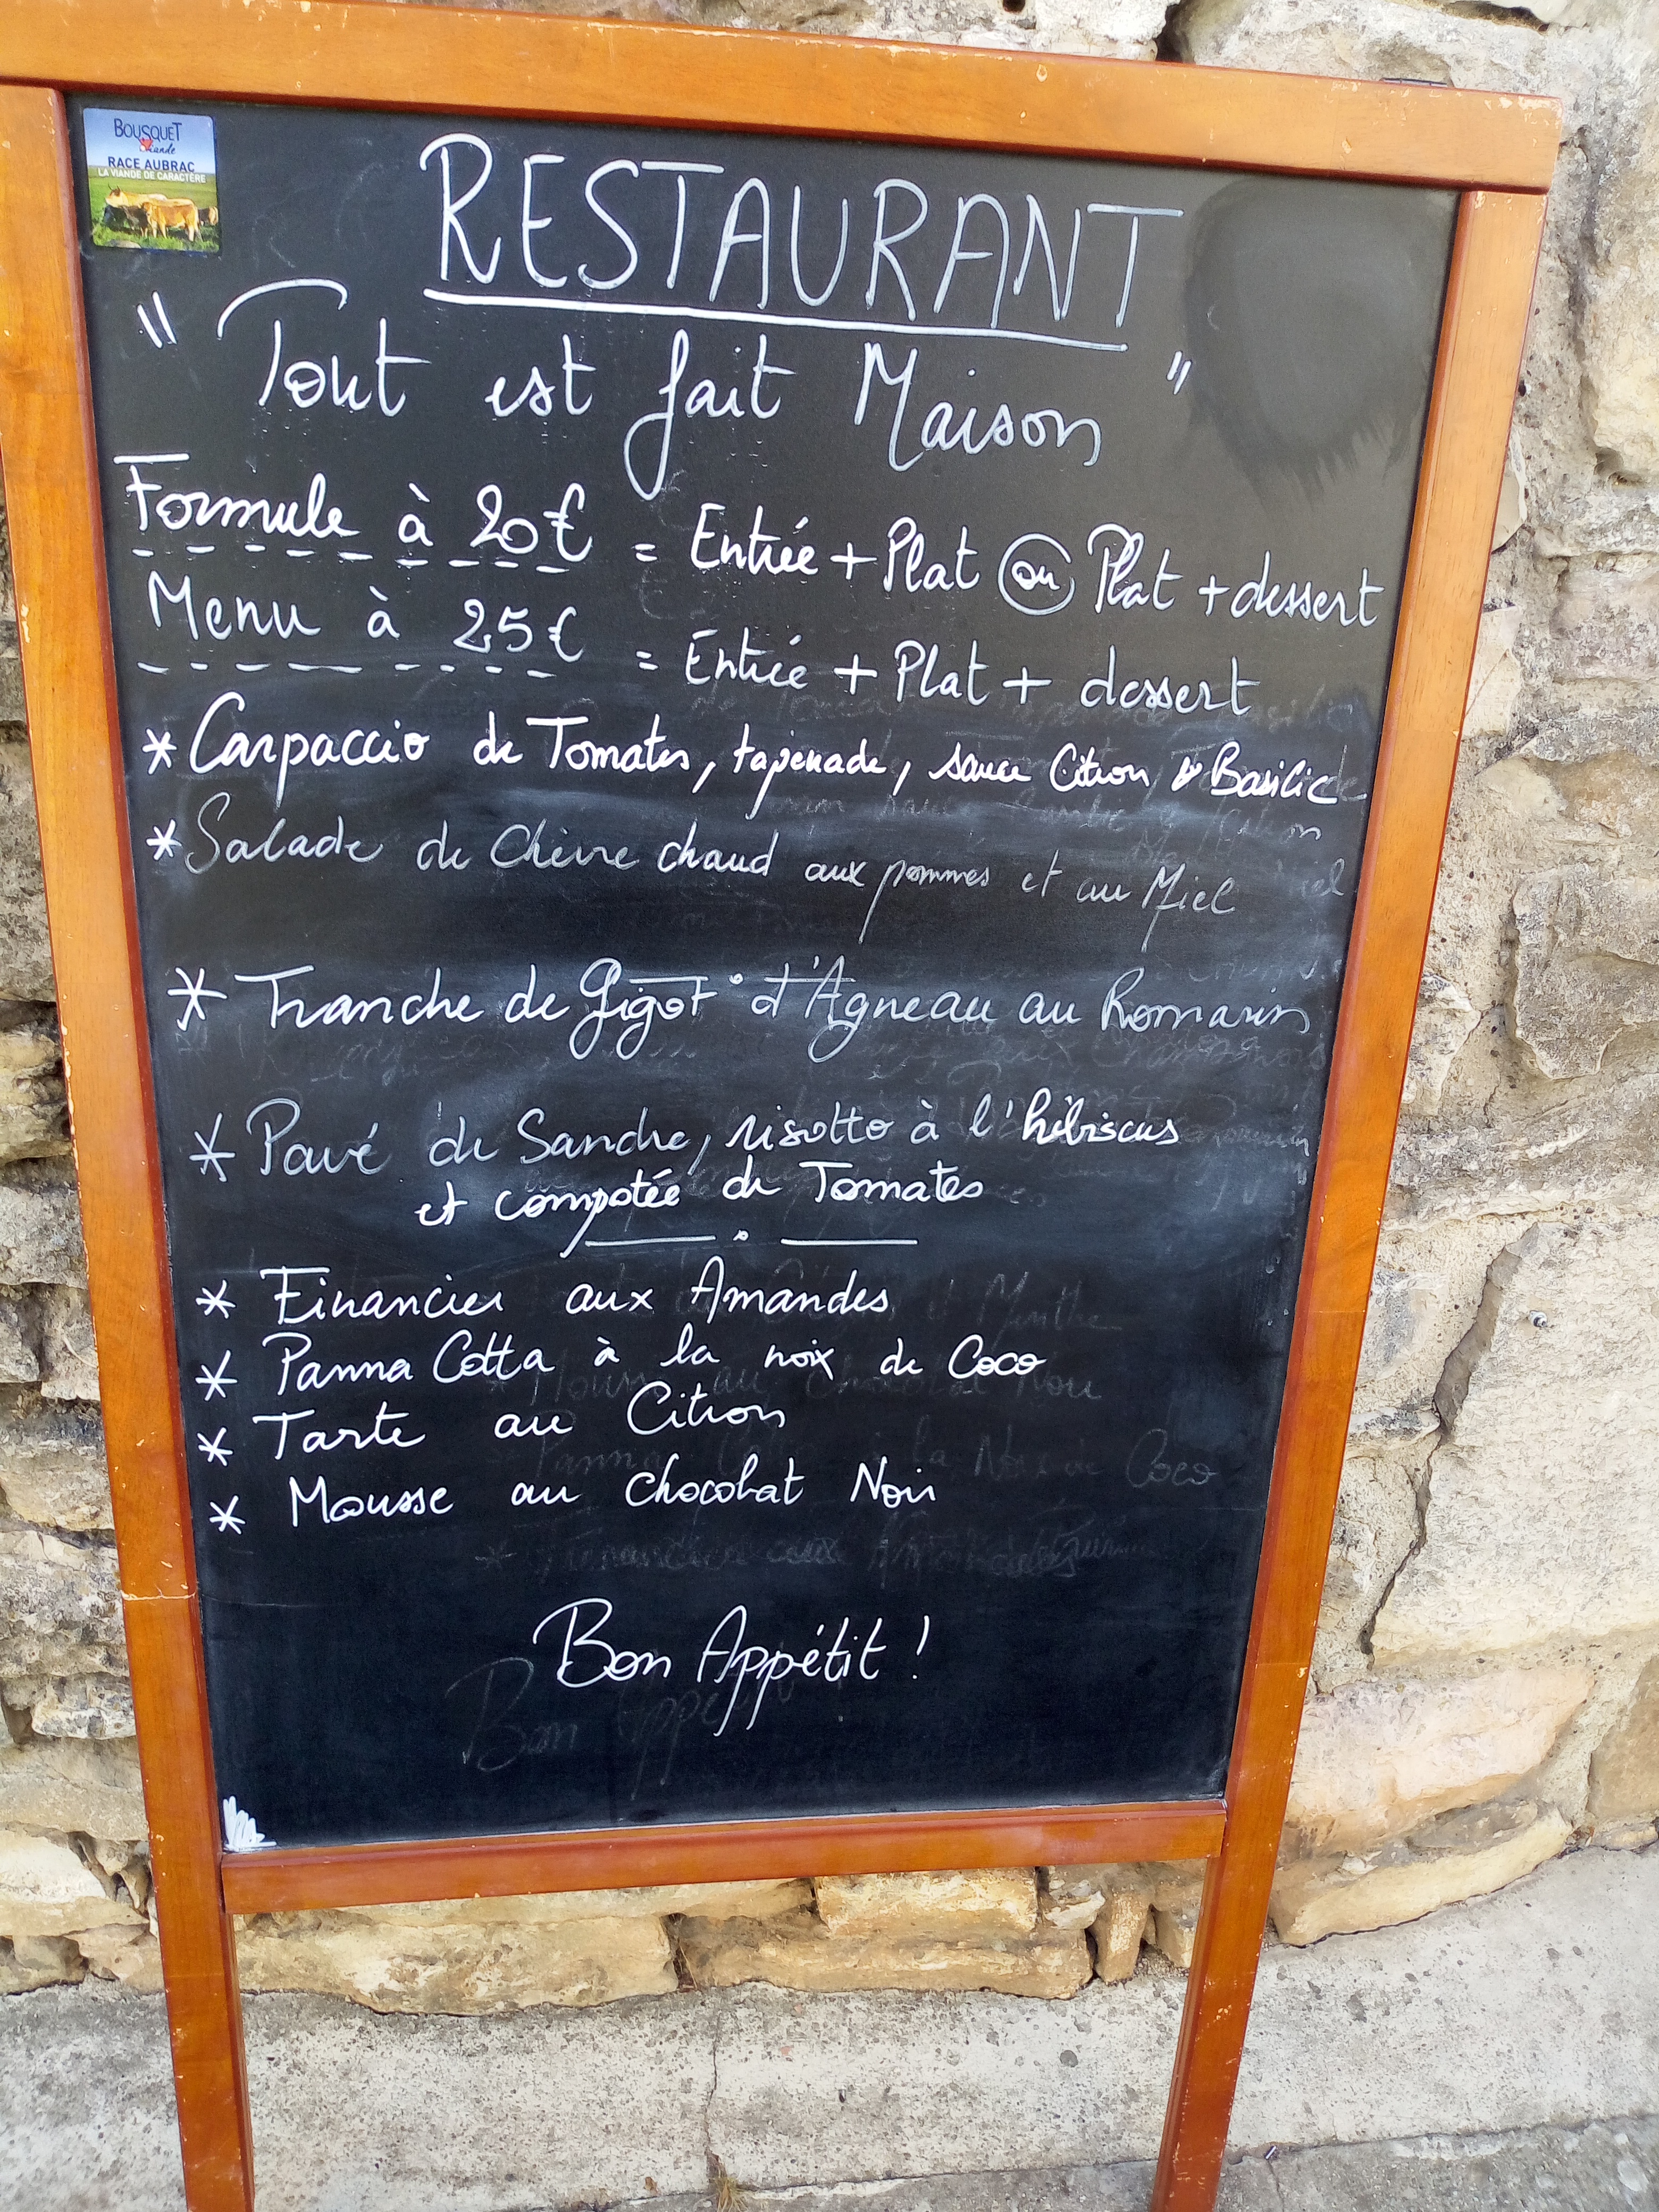 BOUSQUET
Viande
RACE AUBRAC
LA VIANDE DE CARACTÈRE
RESTAURANT
" Tout est fait Maison "
Formule à 20€ = Entrée + Plat ou Plat + dessert
Menu à 25€ = Entrée + Plat + dessert
* Carpaccio de Tomates, tapenade, sauce Citron & Basilic
* Salade de Chèvre chaud aux pommes et au Miel
* Tranche de Gigot d'Agneau au Romarin
* Pavé de Sandre, risotto à l'hibiscus
et compotée de Tomates
* Financier aux Amandes
* Panna Cotta à la noix de Coco
* Tarte au Citron
* Mousse au Chocolat Noir
Bon Appétit !